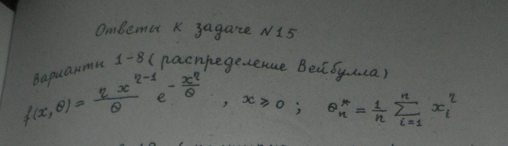 Ответы к задаче №15
Варианты 1-8 (распределение Вейбулла)
f(x,θ) = η x^{η-1}/θ e^{-x^η/θ} , x ⩾ 0 ; θ*_n = 1/n ∑_{i=1}^{n} x_i^η